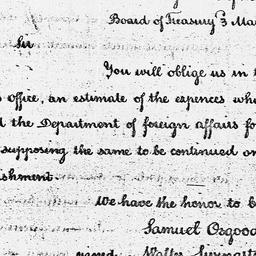 Board of Treasury 3 Ma
Sir
You will oblige us in t
office, an estimate of the expences whi
the Department of foreign affairs fo
supposing the same to be continued on
ishment.
We have the honor to b
Samuel Osgood
Walter Livingst